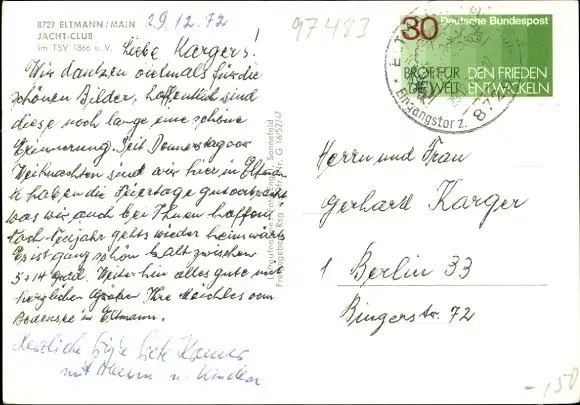 8729 ELTMANN/MAIN
JACHT-CLUB
im TSV 1866 e. V.
29.12.72
97483
Liebe Kargers!
Wir danken vielmals für die
schönen Bilder, hoffentlich sind
diese noch lange eine schöne
Erinnerung. Seit Donnerstag vor
Weihnachten sind wir hier in Eltmann
u haben die Feiertage gut verbracht
was wir auch bei Ihnen hoffen
Nach Neujahr gehts wieder heimwärts
Es ist ganz schön kalt zwischen
5 + 14 grad. Weiterhin alles gute mit
herzlichen Grüßen Ihre Maichles vom
Bodensee in Eltmann.
Herzliche Grüße
mit Mann u. Kindern
Luftaufnahme
Freigegeben Reg. Nr. G 16/5247
30 Deutsche Bundespost
BROT FÜR DIE WELT
DEN FRIEDEN ENTWICKELN
Eingangstor z.
872
Herrn und Frau
Gerhard Karger
1 Berlin 33
Bingerstr. 72
-,50